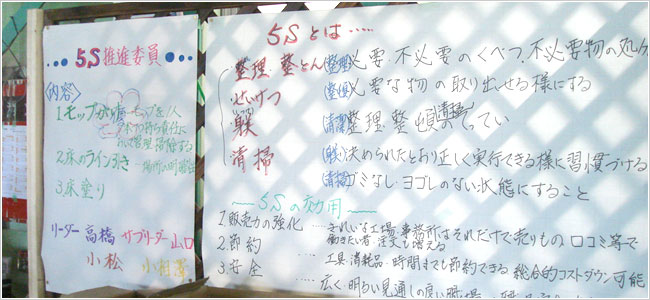 5S推進委員
〈内容〉
1.モップがけ
2.床のライン引き
3.床塗り
リーダー 高橋 サブリーダー 山口
小松
5Sとは……
整理・整とん
せいけつ
躾
清掃
(整理)必要・不必要のくべつ、不必要物の処分
(整頓)必要な物の取り出せる様にする
(清潔)整理・整頓
清掃
(躾)決められたとおり正しく実行できる様に習慣づける
(清掃)ゴミなし・ヨゴレのない状態にすること
5Sの効用
1.販売力の強化
きれいな工場・事務所はそれだけで売りもの、口コミ等で
働きたい者・注文も増える
2.節約
工具・消耗品・時間までも節約できる 総合的コストダウン可能
3.安全
広く・明るい見通しの良い職場